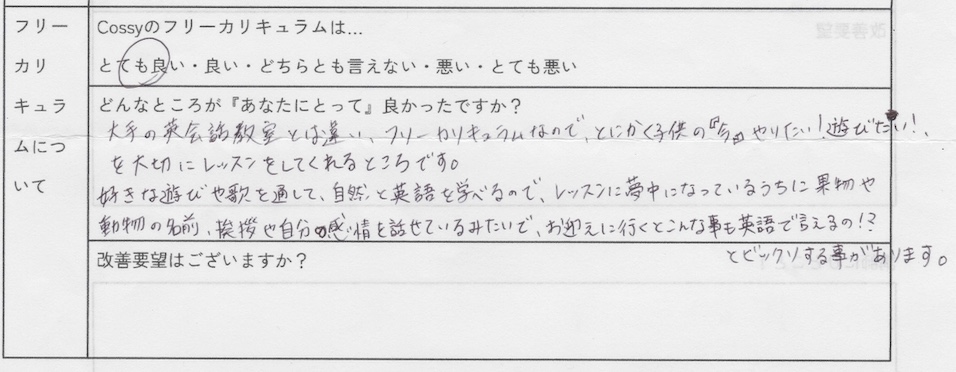 フリー
カリ
キュラ
ムにつ
いて
Cossyのフリーカリキュラムは...
とても良い・良い・どちらとも言えない・悪い・とても悪い
どんなところが『あなたにとって』良かったですか？
大手の英会話教室とは違い、フリーカリキュラムなので、とにかく子供の『今』やりたい！遊びたい！、
を大切にレッスンをしてくれるところです。
好きな遊びや歌を通して、自然と英語を学べるので、レッスンに夢中になっているうちに果物や
動物の名前、挨拶や自分の感情を話せているみたいで、お迎えに行くとこんな事も英語で言えるの！？
とビックリする事があります。
改善要望はございますか？
改善要望